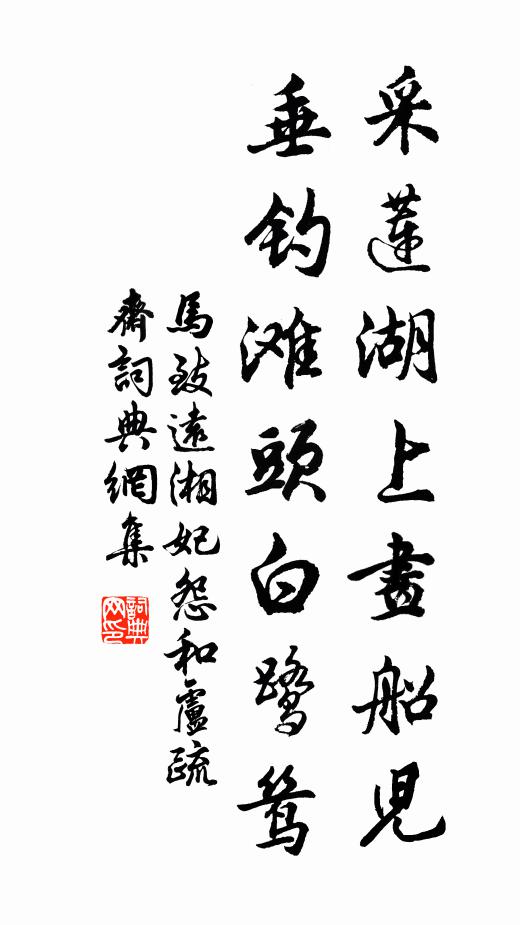 采蓮湖上畫船兒
垂釣滩頭白鹭鸶
馬致遠湘妃怨和盧疏
齋詞典網集
詞典网印